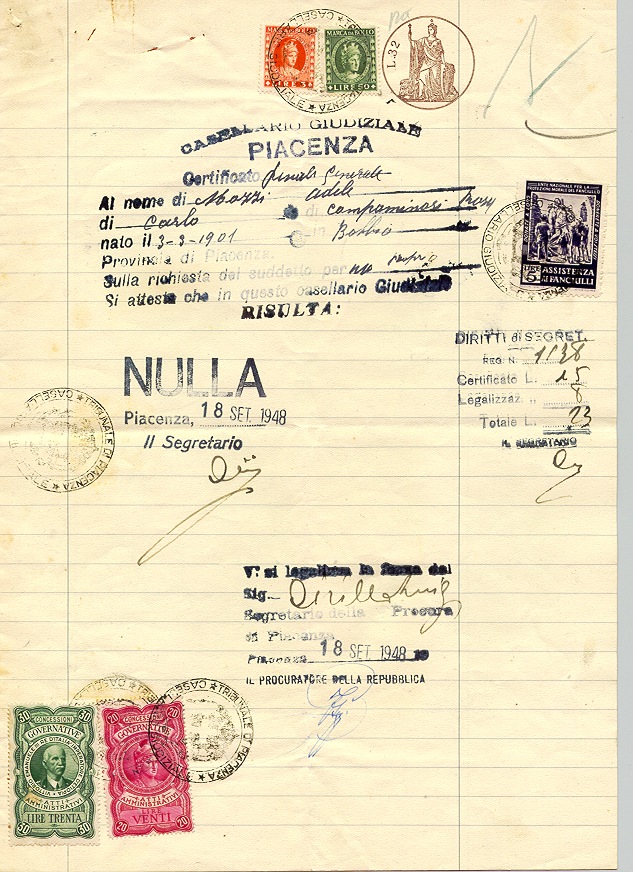 MARCA DA BOLLO
LIRE 3
LIRE 50
L.32
CASELLARIO GIUDIZIALE
PIACENZA
Certificato Penale Generale
Al nome di Mozzi Adele
di Carlo di Campaminosi
nato il 3-3-1901 in Bobbio
Provincia di Piacenza.
Sulla richiesta del suddetto per
Si attesta che in questo casellario Giudiziale
RISULTA:
ENTE NAZIONALE PER LA
PROTEZIONE MORALE DEL FANCIULLO
LIRE 5
ASSISTENZA
FANCIULLI
CASELLARIO GIUDIZIALE
DIRITTI di SEGRET.
REG. N. 1138
Certificato L. 15
Legalizzaz. „ 8
Totale L. 23
IL SEGRETARIO
NULLA
Piacenza, 18 SET. 1948
Il Segretario
TRIBUNALE DI PIACENZA ★ CASELL
V. si legalizza la firma del
Sig.
Segretario della Procura
di Piacenza
Piacenza 18 SET 1948 19
IL PROCURATORE DELLA REPUBBLICA
TRIBUNALE DI PIACENZA
30 CONCESSIONI 30
GOVERNATIVE
ATTI
AMMINISTRATIVI
LIRE TRENTA
30 30
20 CONCESSIONI 20
GOVERNATIVE
ATTI
AMMINISTRATIVI
LIRE
VENTI
20 20